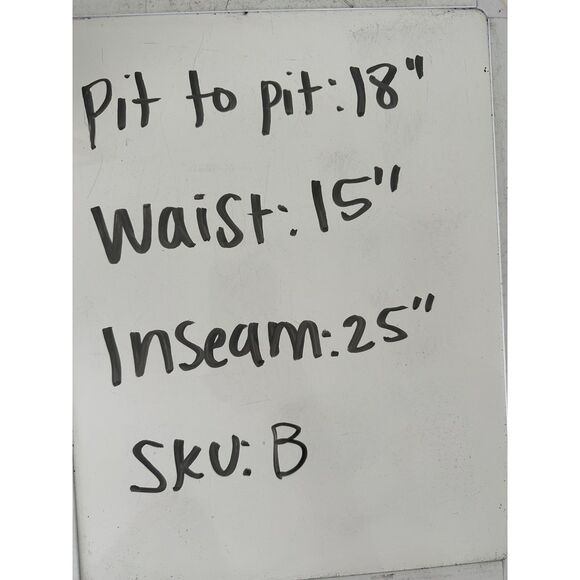 Pit to pit: 18"
Waist: 15"
Inseam: 25"
SKU: B